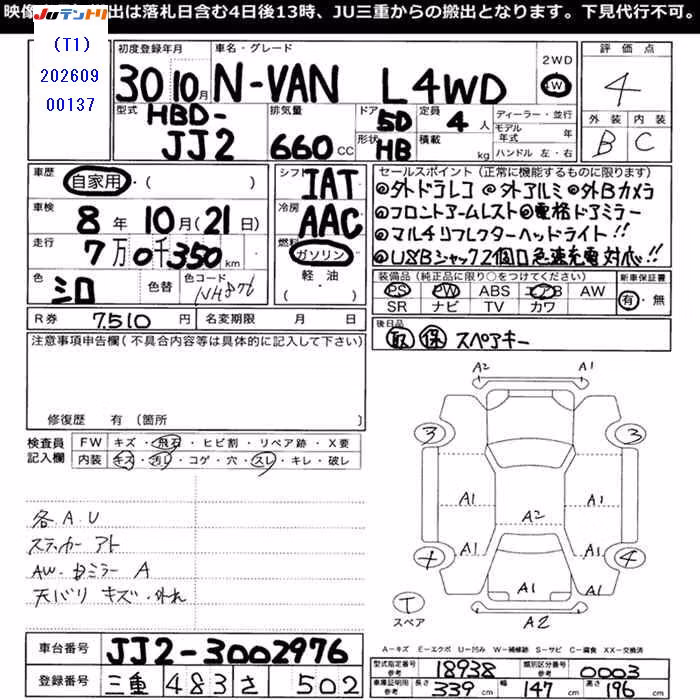 映像 出は落札日含む4日後13時、JU三重からの搬出となります。下見代行不可。
JUテントリ
(T1)
202609
00137
初度登録年月 車名・グレード 2WD 評価点
30 10月 N-VAN L 4WD 4W 4
型式 HBD-JJ2 排気量 660CC ドア 5D 形状 HB 定員 4人 積載 kg ディーラー・並行 モデル年式 年 ハンドル 左・右 外装 B 内装 C
車歴 自家用・( ) シフト IAT
車検 8年 10月(21日) 冷房 AAC
走行 7万0千350km 燃料 ガソリン 軽・油
色 シロ 色替 色コード NH876
R券 7.510円 名変期限 月 日
セールスポイント(正常に機能するものに限ります)
◎外ドラレコ ◎外アルミ ◎外Bカメラ
◎フロントアームレスト ◎電格ドアミラー
◎マルチリフクターヘッドライト!!
◎USBジャック2個口急速充電対応!!
装備品(純正品に限り○をつけてください) 新車保証書
PS PW ABS エアB AW 有・無
SR ナビ TV カワ
後日品
取 保 スペアキー
注意事項申告欄(不具合内容等は具体的に記入して下さい)
修復歴 有(箇所 )
検査員記入欄 FW キズ・飛石・ヒビ割・リペア跡・X要
内装 キズ・汚レ・コゲ・穴・スレ・キレ・破レ
各A.U
ステッカーアト
AW.ドミラー A
天バリ キズ・外れ
A2 A1
3 3
A1 A1
A2
A1 A1
4 4
A1 A1
T
スペア
A2
A-キズ E-エクボ U-凹み W-補修跡 S-サビ C-腐食 XX-交換済
車台番号 JJ2-3002976
登録番号 三重 483 さ 502
型式指定番号 参考 18938 類別区分番号 参考 0003
車庫証明用 参考 長さ 339cm 幅 147cm 高さ 196cm